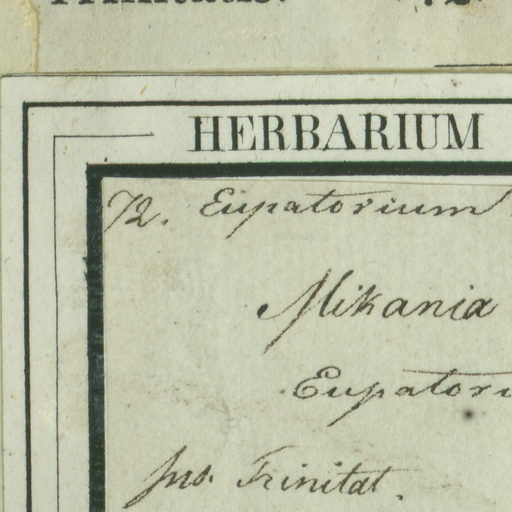 HERBARIUM
72. Eupatorium
Mikania
Eupatori
Ins. Trinitat.